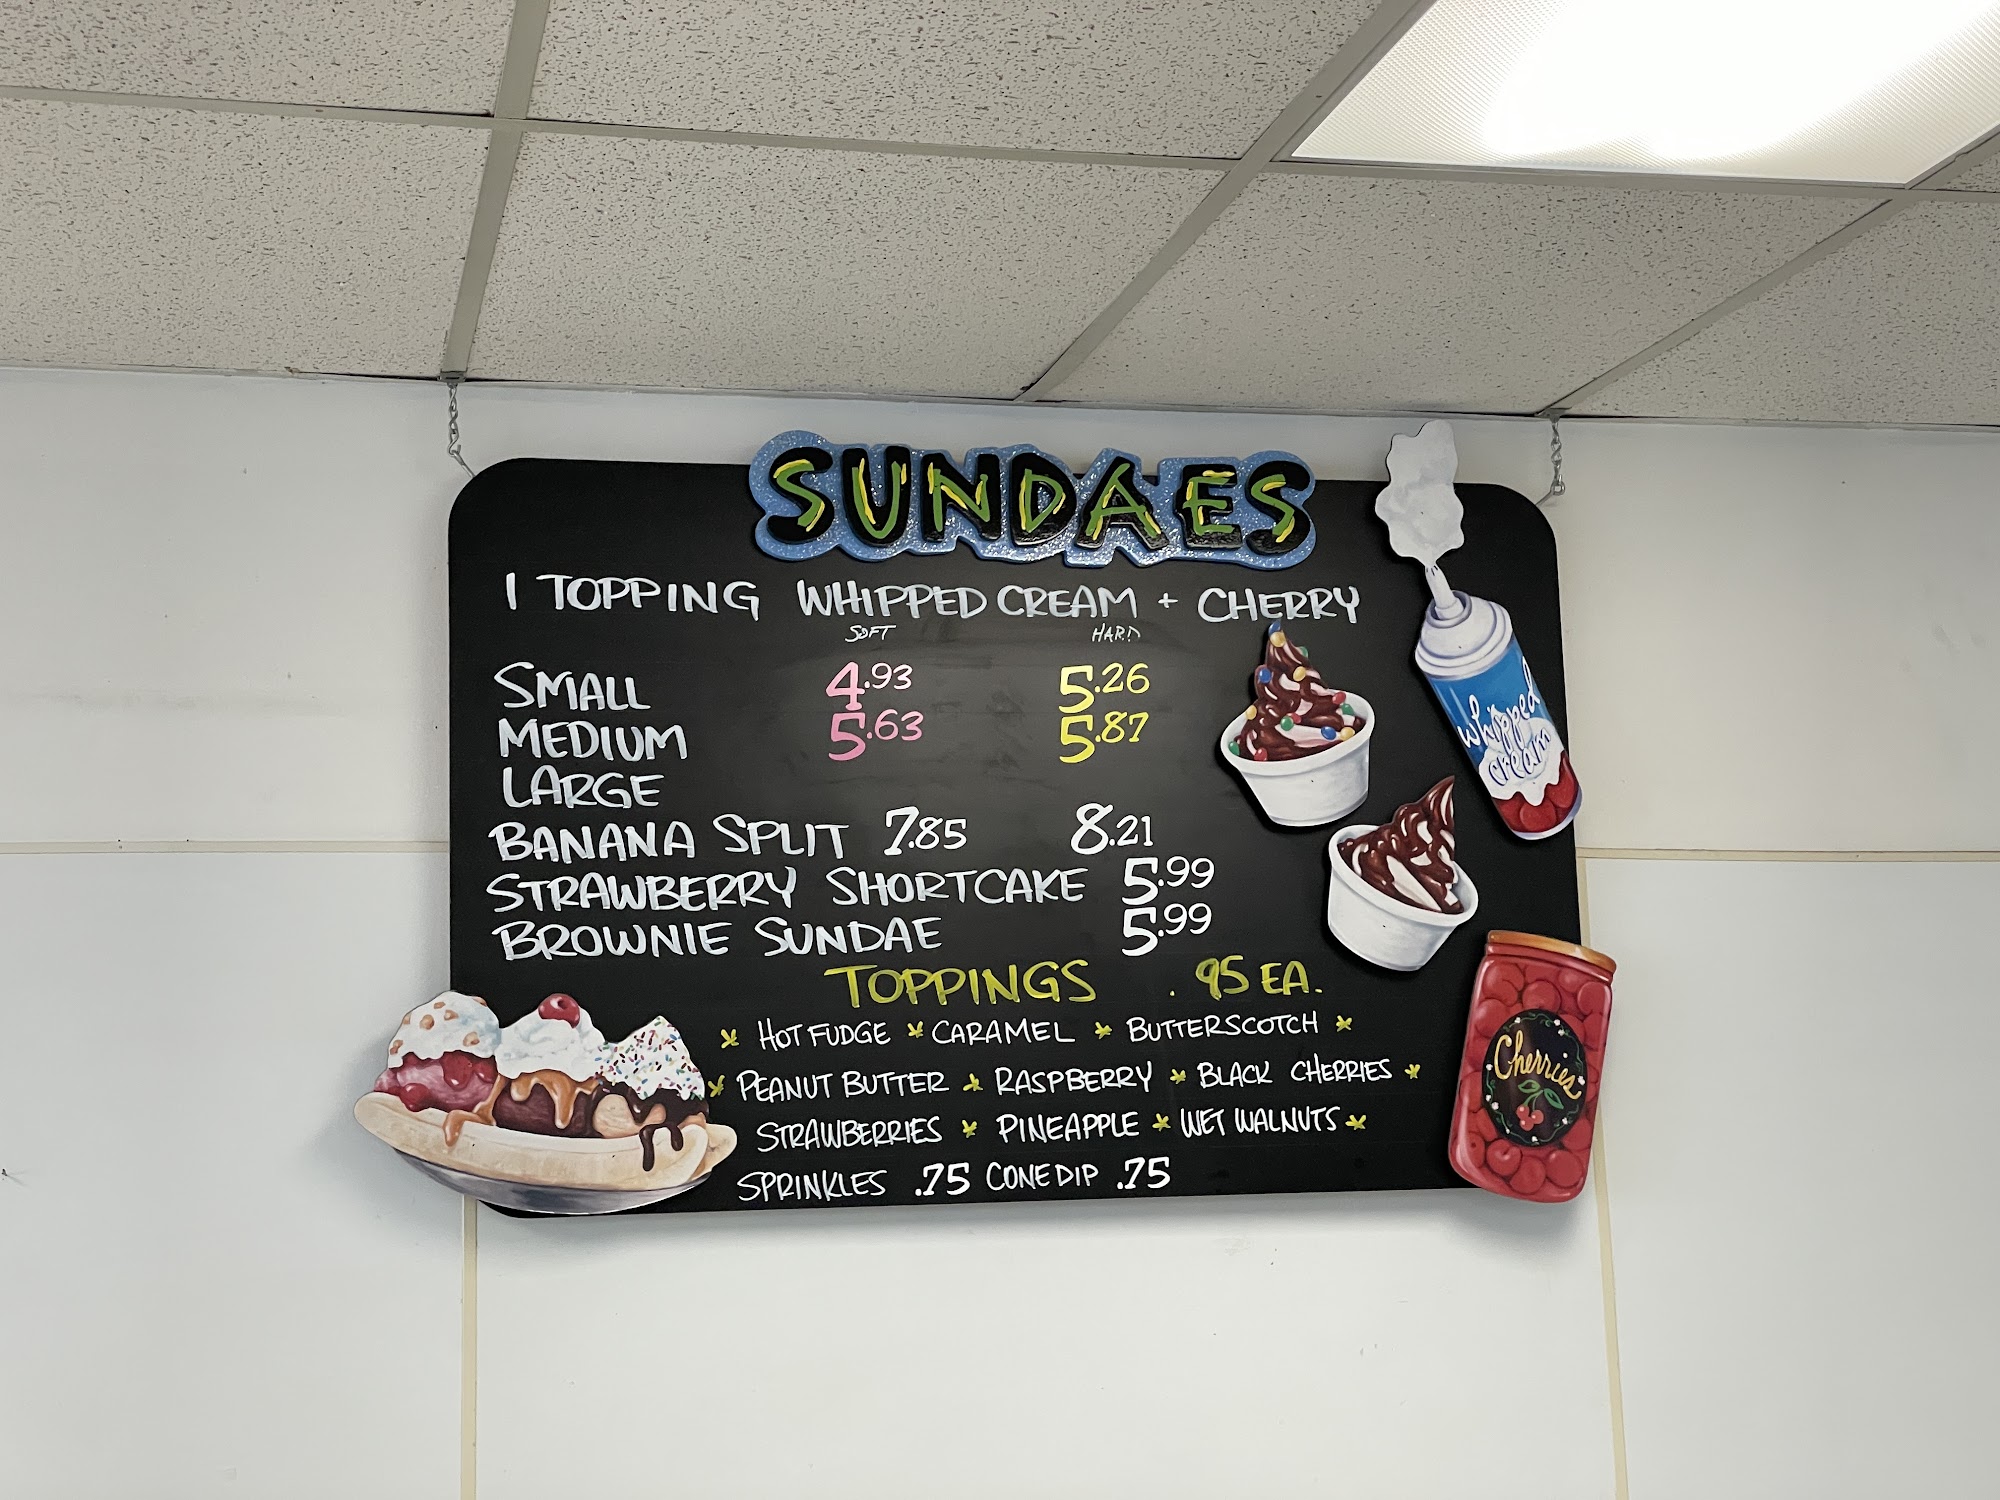 SUNDAES
1 TOPPING WHIPPED CREAM + CHERRY
SOFT HARD
SMALL 4.93 5.26
MEDIUM 5.63 5.87
LARGE
BANANA SPLIT 7.85 8.21
STRAWBERRY SHORTCAKE 5.99
BROWNIE SUNDAE 5.99
TOPPINGS .95 EA.
HOT FUDGE CARAMEL BUTTERSCOTCH
PEANUT BUTTER RASPBERRY BLACK CHERRIES
STRAWBERRIES PINEAPPLE WET WALNUTS
SPRINKLES .75 CONE DIP .75
whipped
cream
Cherries